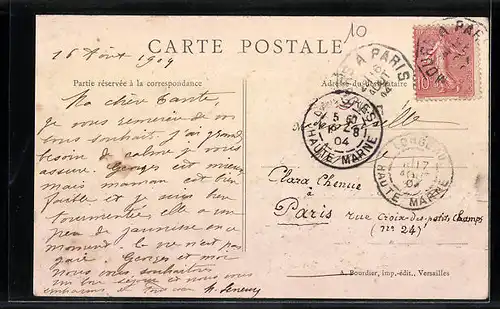 10
16 Août 1904
CARTE POSTALE
Partie réservée à la correspondance
Adresse du destinataire
Ma chère tante,
je vous remercie de vos
souhaits. J'ai grand
besoin de calme je vous
assure. Georges est mieux
mais maman est bien
faible et je suis bien
tourmentée elle a un
peu de jaunisse en ce
moment. la vie n'est pas
gaie. Georges et moi
nous vous souhaitons
un bon séjour et nous vous
embrassons
A PARIS
04
HAUTE MARNE
5
04
LONGEAU
HAUTE MARNE
10
Clara Chenue
à
Paris rue Croix-des-petits-Champs
(nº 24)
A. Bourdier, imp.-édit., Versailles